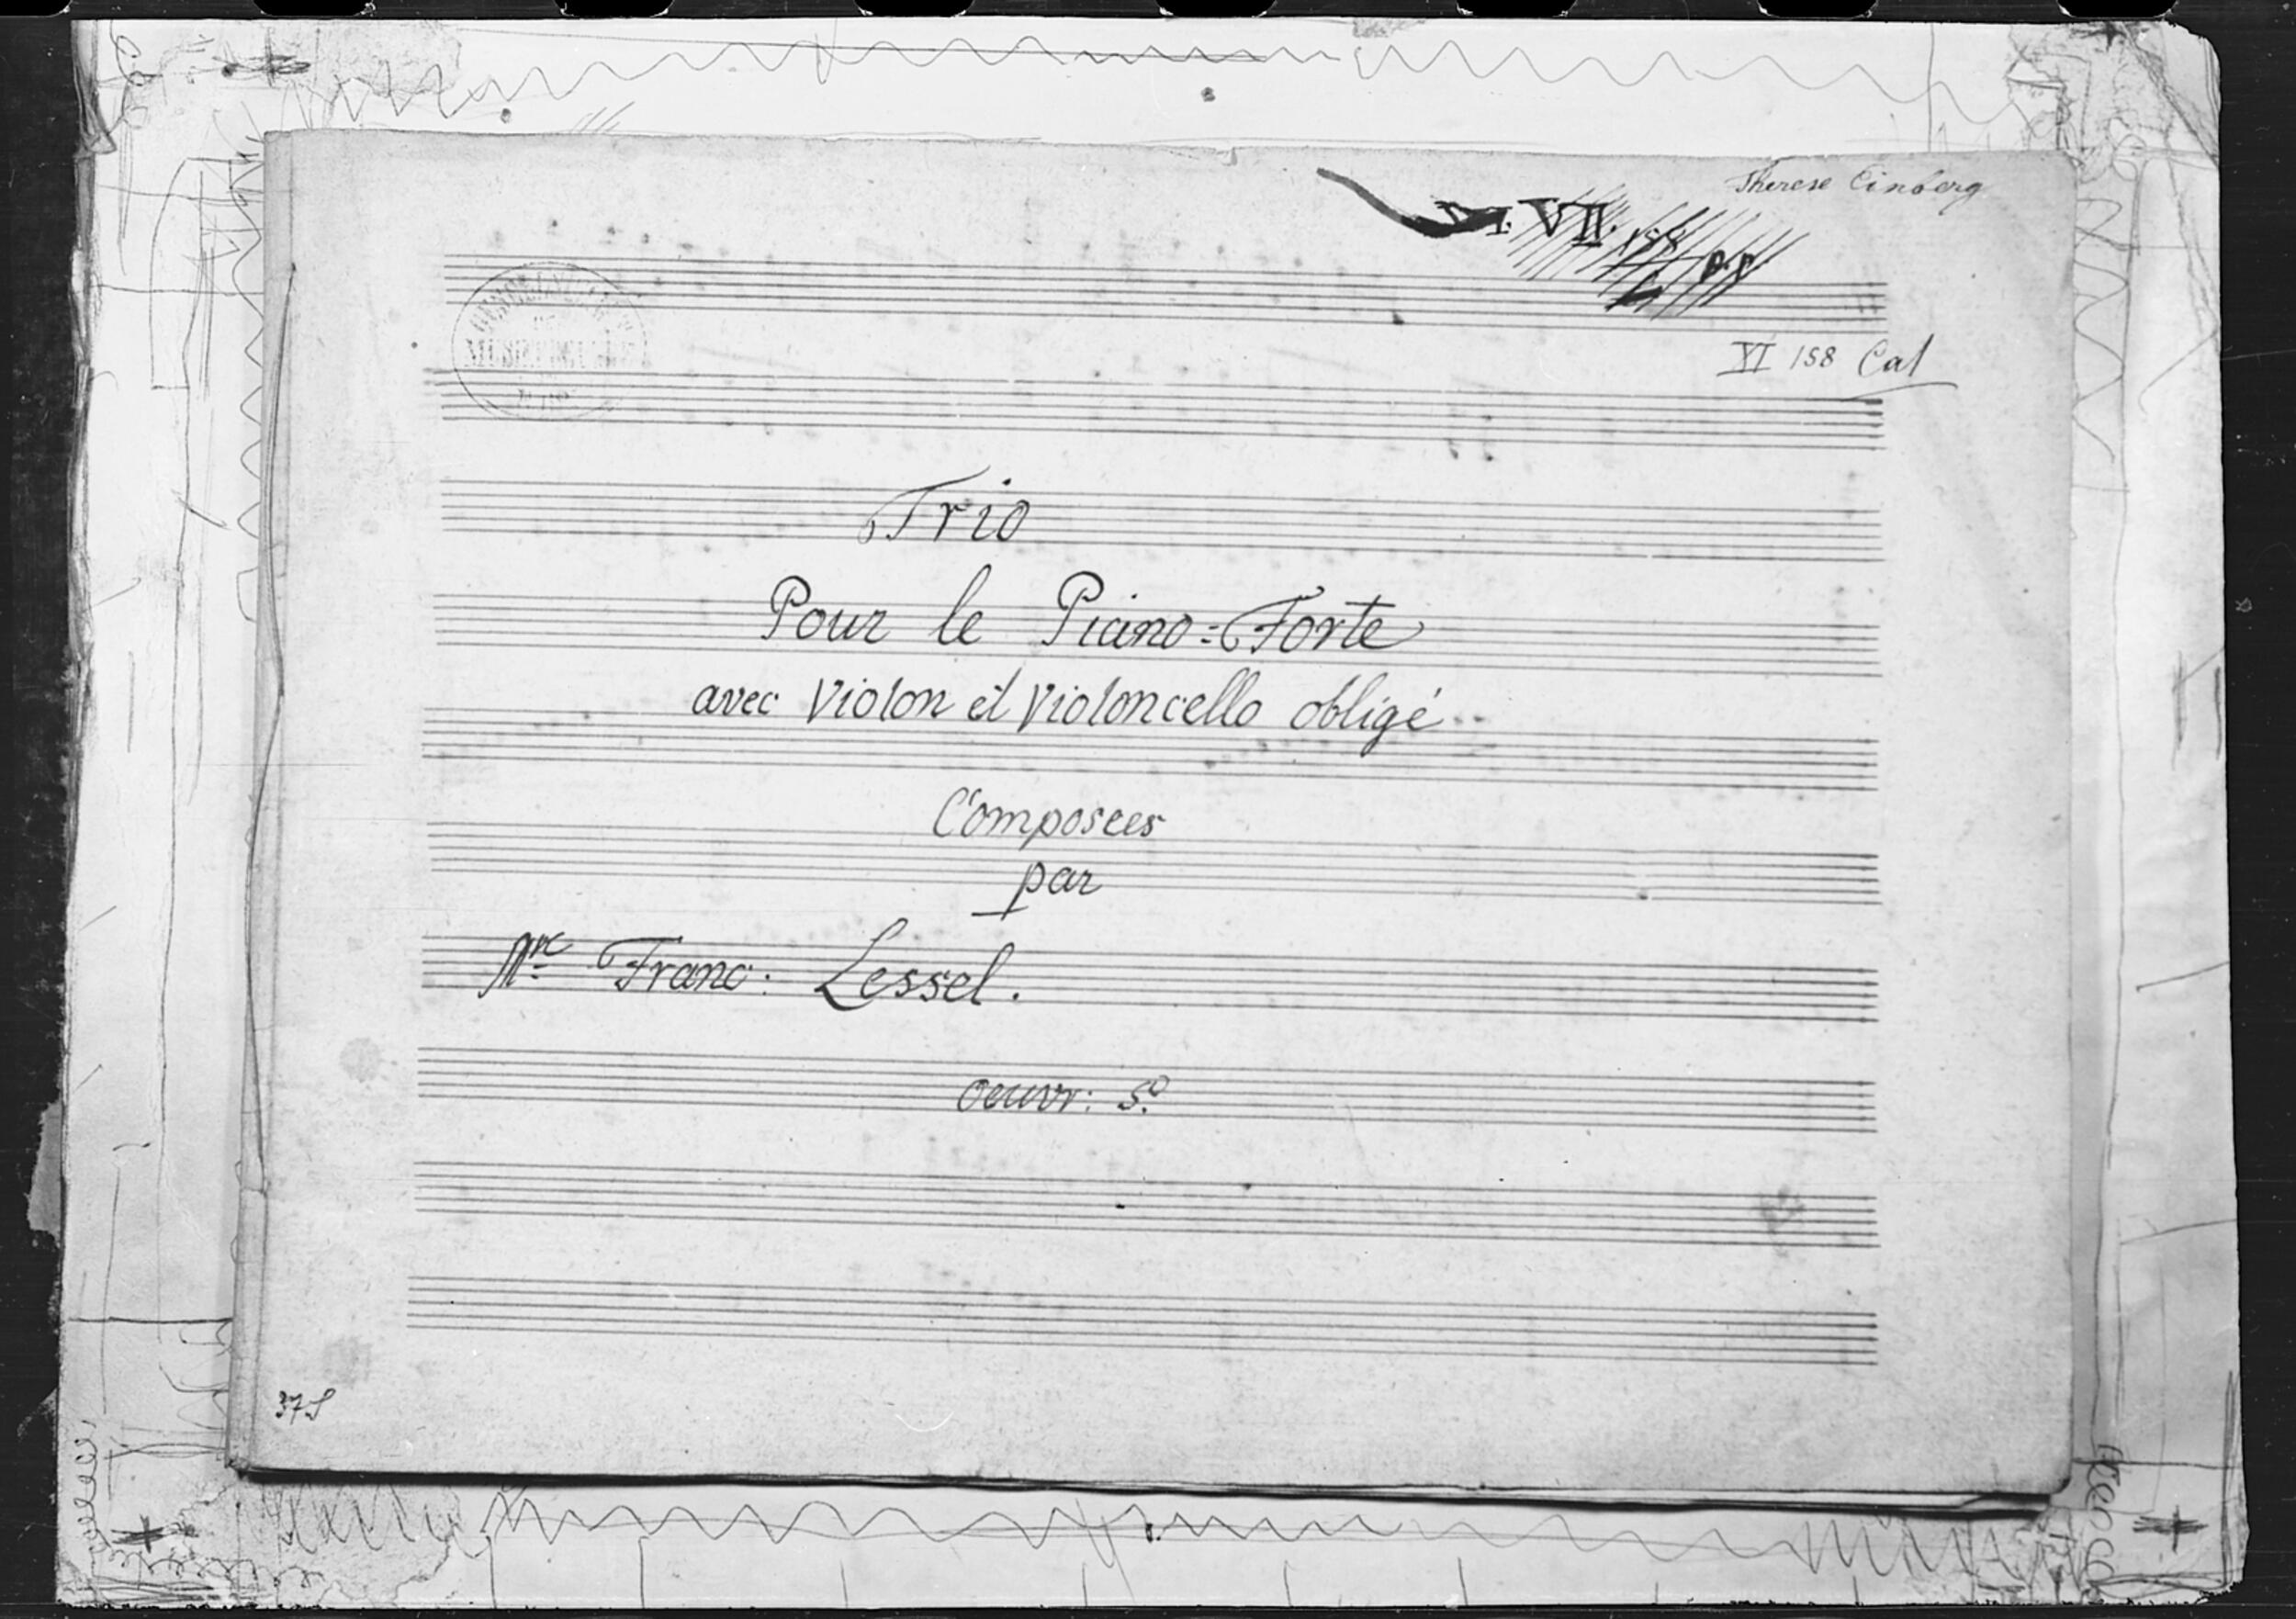 Therese Einberg
VII. 158
XI 158 Cal
Trio
Pour le Piano=Forte
avec Violon et Violoncello obligé
Composees
par
Mr: Franc: Lessel.
oeuvr: 5º